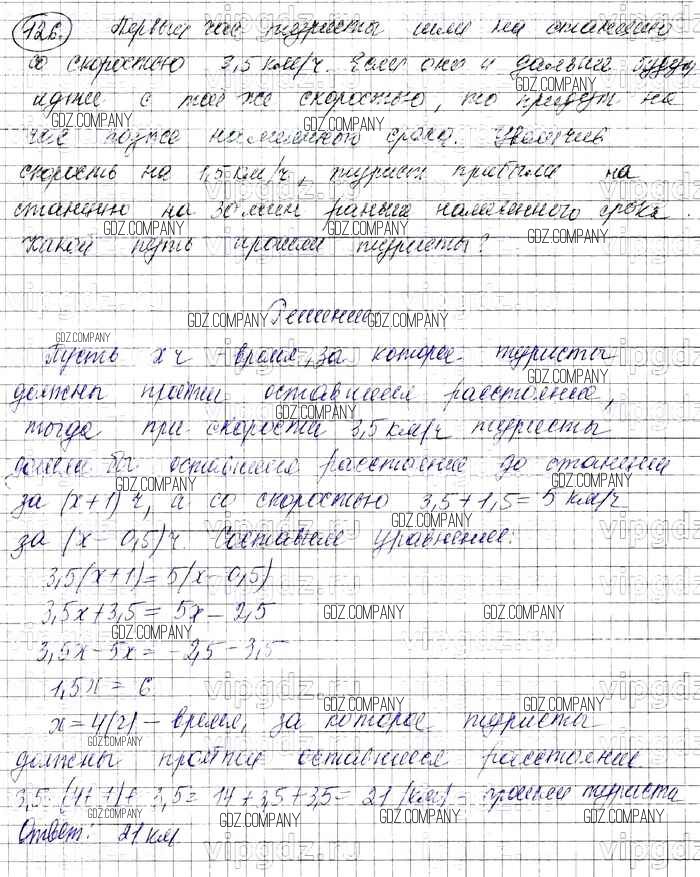 126. Первый час туристы шли на станцию
со скоростью 3,5 км/ч. Если они и дальше будут
идти с той же скоростью, то придут на
час позже намеченного срока. Увеличив
скорость на 1,5 км/ч, туристы прибыли на
станцию на 30 мин раньше намеченного срока.
Какой путь прошли туристы?
Решение.
Пусть х ч - время, за которое туристы
должны пройти оставшееся расстояние,
тогда при скорости 3,5 км/ч туристы
дошли бы оставшееся расстояние до станции
за (х+1) ч, а со скоростью 3,5+1,5=5 км/ч
за (х-0,5) ч Составим уравнение:
3,5(х+1)=5(х-0,5)
3,5х+3,5=5х-2,5
3,5х-5х=-2,5-3,5
1,5х=6
х=4(ч) - время, за которое туристы
должны пройти оставшееся расстояние
3,5·(4+1)+3,5=14+3,5+3,5=21 (км) - прошли туристы
Ответ: 21 км
GDZ.COMPANY
vipgdz.ru